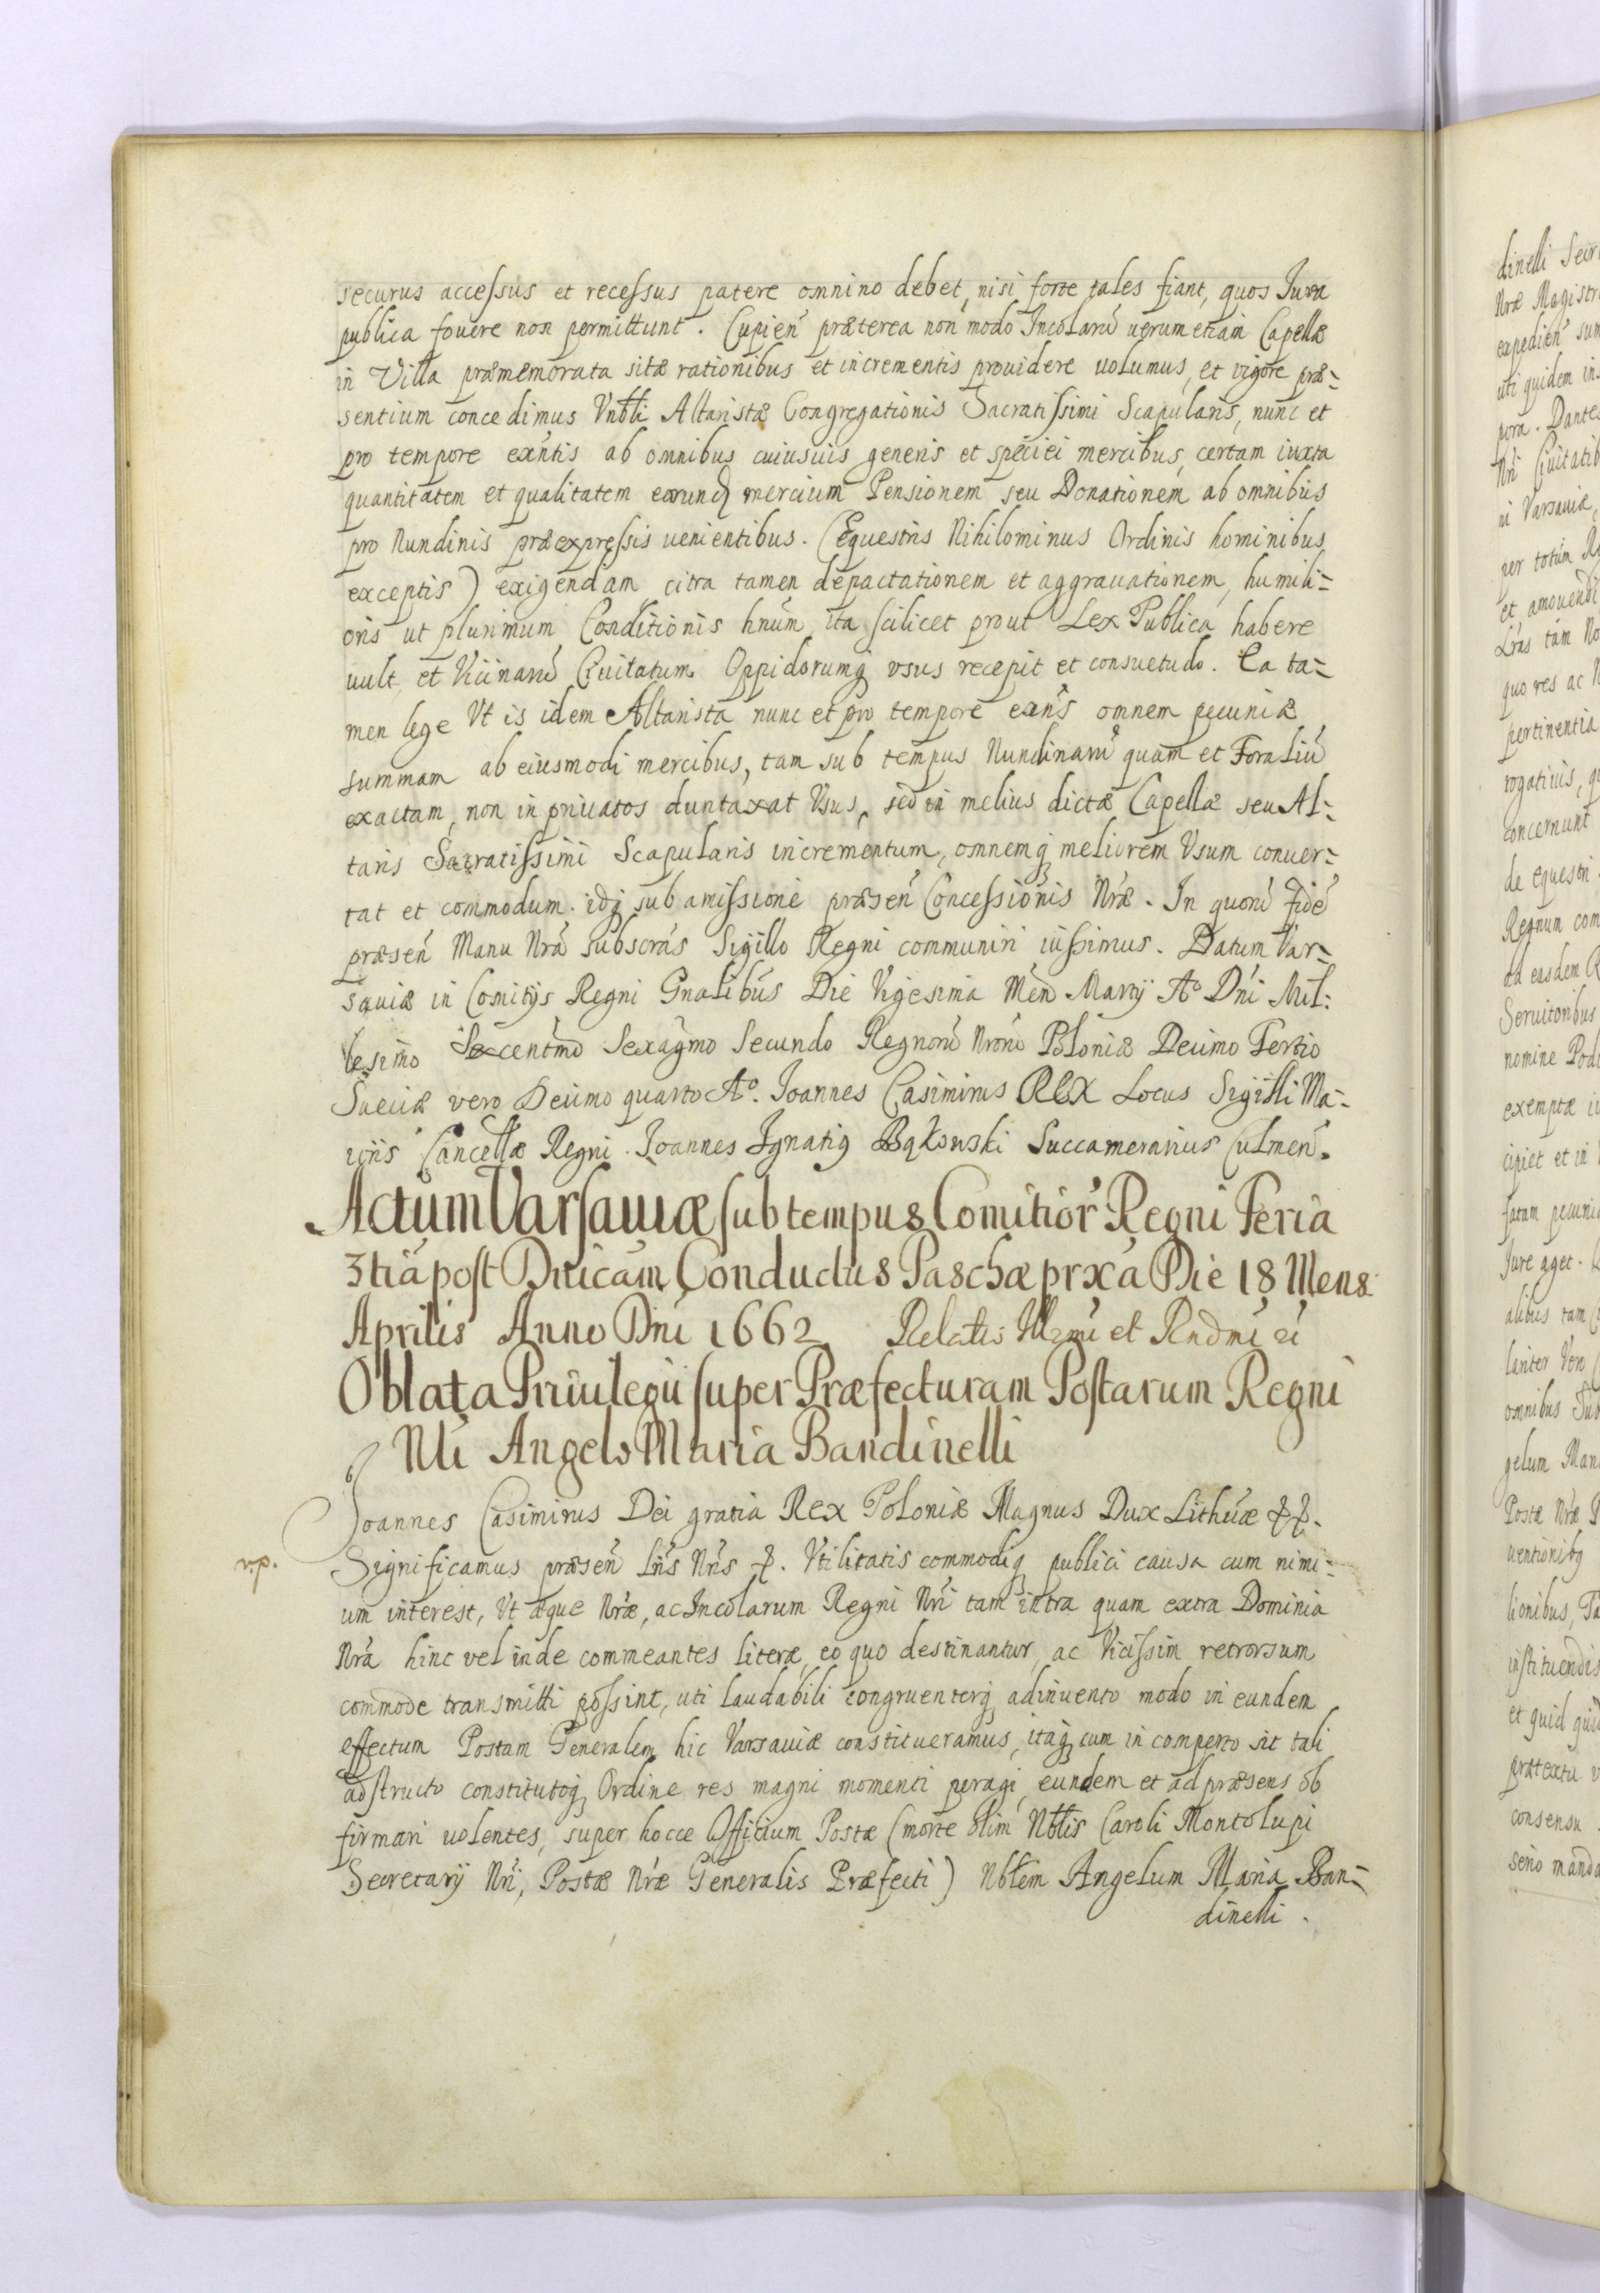 securus accessus et recessus patere omnino debet, nisi forte tales fiant, quos Jura
publica fouere non permittunt. Cupien̄ præterea non modo Incolarū uerum etiam Capellæ
in Villa præmemorata sitæ rationibus et incrementis prouidere uolumus, et vigore præ=
sentium concedimus Vnbli Altaristæ Congregationis Sacratissimi Scapularis, nunc et
pro tempore exn̄tis ab omnibus cuiusuis generis et speciei mercibus, certam iuxta
quantitatem et qualitatem earund mercium Pensionem seu Donationem ab omnibus
pro Nundinis præexpressis uenientibus. (Equestris Nihilominus Ordinis hominibus
exceptis) exigendam citra tamen depactationem et aggrauationem, humili=
oris ut plurimum Conditionis hnūm ita scilicet prout Lex Publica habere
uult, et Vicinarū Ciuitatum Oppidorumq vsus recepit et consuetudo. Ea ta=
men lege Vt is idem Altarista nunc et pro tempore exn̄s omnem pecuniæ
summam ab eiusmodi mercibus, tam sub tempus Nundinarū quam et Foraliū
exactam, non in priuatos duntaxat Vsus, sed in melius dictæ Capellæ seu Al=
taris Sacratissimi Scapularis incrementum, omnemq meliorem Vsum conuer=
tat et commodum. idq sub amissione præsen̄ Concessionis Nræ. In quorū fidē
præsen̄ Manu Nrā subscrās Sigillo Regni communiri iussimus. Datum Var=
sauiæ in Comitijs Regni Gnalibūs Die Vigesima Men̄ Martij Aº Dn̄i Mil=
lesimo Sexcentmō Sexagmo Secundo Regnorū Nrorū Poloniæ Decimo Tertio
Sueciæ vero Decimo quarto Aº. Joannes Casimirus REX Locus Sigilli Ma=
ioris Cancellæ Regni. Joannes Ignatiq Bąkowski Succamerarius Culmen̄.
Actum Varsauiæ sub tempus Comitior̄ Regni Feria
3tiā post Dnicām Conductus Paschæ prxā Die 18 Mens
Aprilis Anno Dn̄i 1662
Oblata Priuilegii super Præfecturam Postarum Regni
Nli Angelo Maria Bandinelli
Joannes Casimirus Dei gratia Rex Poloniæ Magnus Dux Lithuæ &&.
v.p.
Significamus præsen̄ Lrīs Nrīs &. Vtilitatis commodiq publici causa cum nimi=
um interest, Vt æque Nræ, ac Incolarum Regni Nrī tam intra quam extra Dominia
Nrā hinc vel inde commeantes literæ, eo quo destinantur, ac Vicissim retrorsum
commode transmitti possint, uti laudabili congruenterq adinuento modo in eundem
effectum Postam Generalem hic Varsauiæ constitueramus, itaq cum in comperto sit tali
adstructo constitutoq Ordine res magni momenti peragi, eundem et ad præsens ob
firmari uolentes, super hocce Officium Postæ (morte olim Nbtīs Caroli Montolupi
Secretarij Nrī, Postæ Nræ Generalis Præfecti) Nblem Angelum Maria Ban=
dinelli.